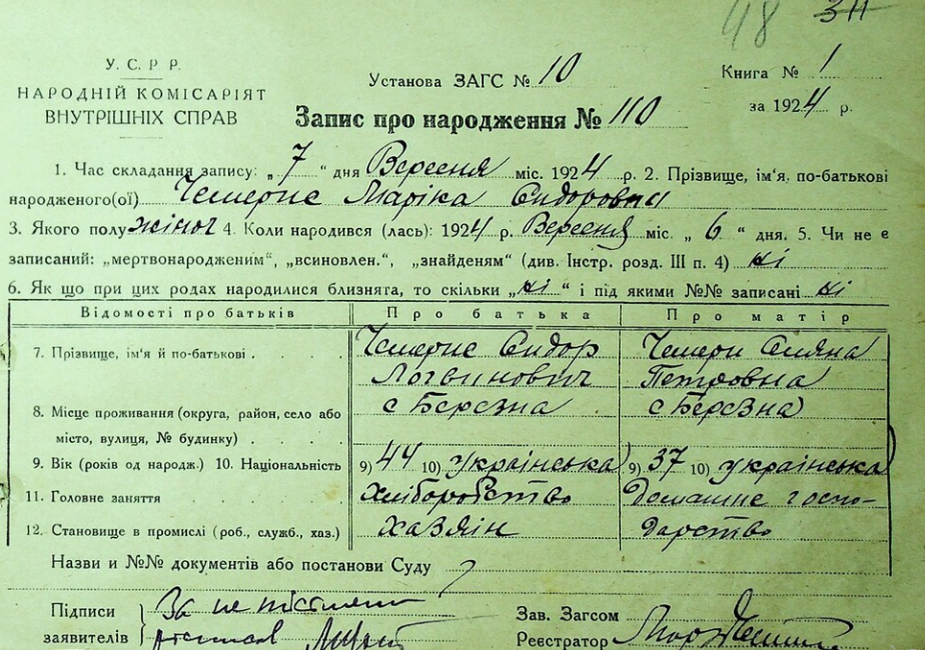 48 311
У. С. Р. Р.
НАРОДНІЙ КОМІСАРІЯТ
ВНУТРІШНІХ СПРАВ
Установа ЗАГС № 10
Книга № 1
за 1924 р.
Запис про народження № 110
1. Час складання запису: „7“ дня Вересня міс. 1924 р. 2. Прізвище, ім'я, по-батькові
народженого(ої) Чемерис Маріка Сидоровна
3. Якого полу жіноч 4. Коли народився (лась): 1924 р. Вересня міс. „6“ дня. 5. Чи не є
записаний: „мертвонародженим“, „всиновлен.“, „знайденям“ (див. Інстр. розд. III п. 4) ні
6. Як що при цих родах народилися близняга, то скільки „ні“ і під якими №№ записані ні
Відомості про батьків Про батька Про матір
7. Прізвище, ім'я й по-батькові . . . . Чемерис Сидор Чемери
Логвинович Петровна
8. Місце проживання (округа, район, село або с Берєзна с Берєзна
місто, вулиця, № будинку) . . . .
9. Вік (років од народж.) 10. Національність 9) 44 10) українська 9) 37 10) українська
11. Головне заняття . . . . Хліборобство Домашнє госпо-
12. Становище в промислі (роб., служб., хаз.) Хазяін дарство
Назви и №№ документів або постанови Суду
Підписи За
заявителів
Зав. Загсом
Реєстратор